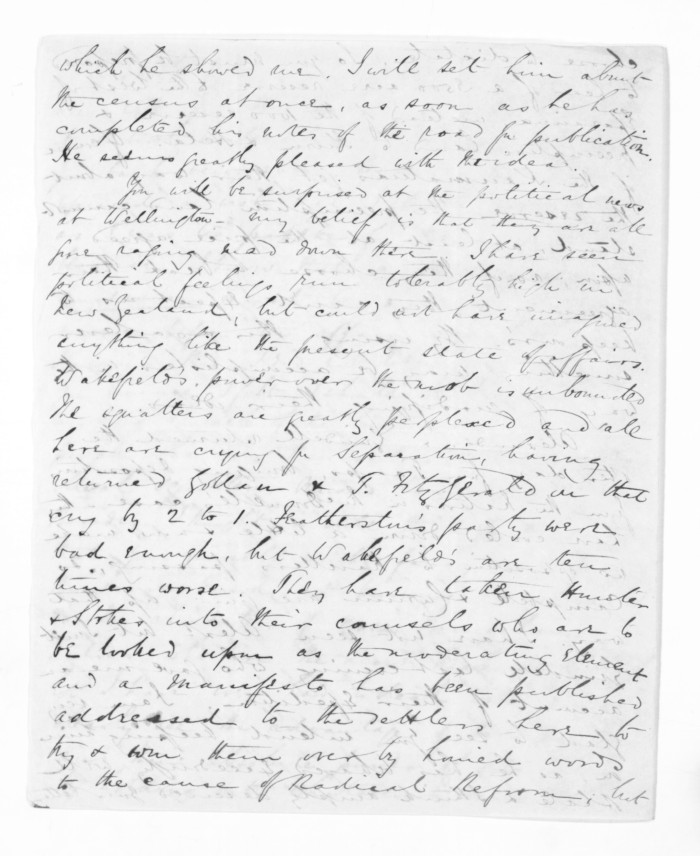 which he showed me. I will set him about
the census at once, as soon as he has
completed his notes of the road for publication.
He seems greatly pleased with the idea.
You will be surprised at the political news
at Wellington – my belief is that they are all
gone raging mad down there I have seen
political feelings run tolerably high in
New Zealand, but could not have imagined
anything like the present state of affairs.
Wakefield's power over the mob is unbounded
The squatters are greatly perplexed and all
here are crying for Separation, having
returned Gollan & T. Fitzgerald on that
cry by 2 to 1. Featherston's party were
bad enough, but Wakefield's are ten
times worse. They have taken Hunter
& Stokes into their counsels who are to
be looked upon as the moderating Element
and a Manifesto has been published
addressed to the settlers here to
try & win them over by honied words
to the cause of Radical Reform, but